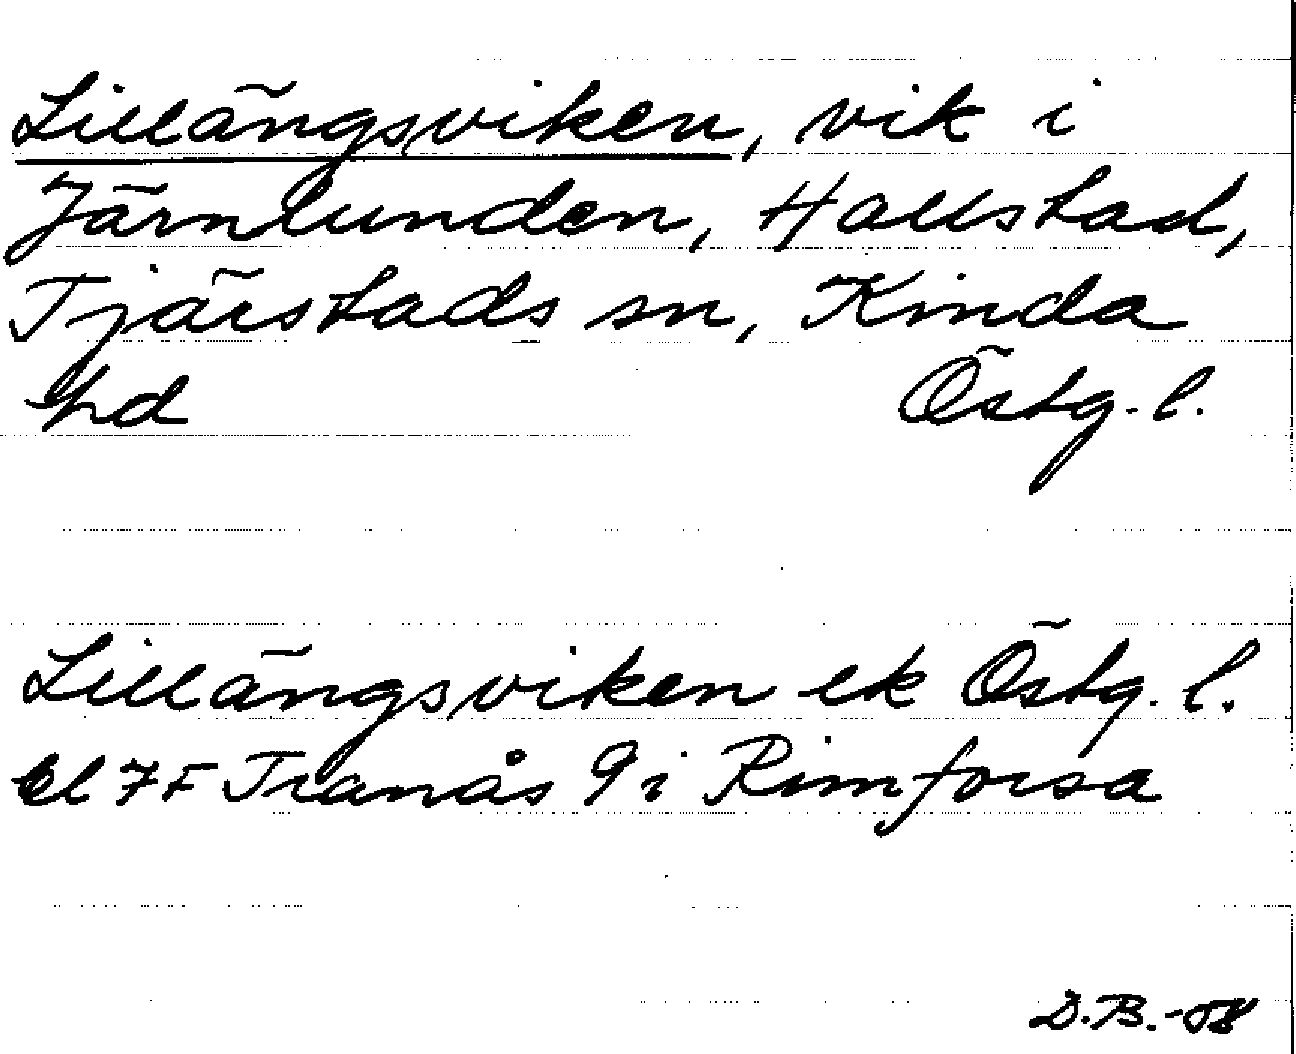 Lillängsviken, vik i
Järnlunden, Hallstad,
Tjärstads sn, Kinda
hd Östg. l.
Lillängsviken ek Östg. l.
bl 7F Tranås 9 i Rimforsa
D.B.-58